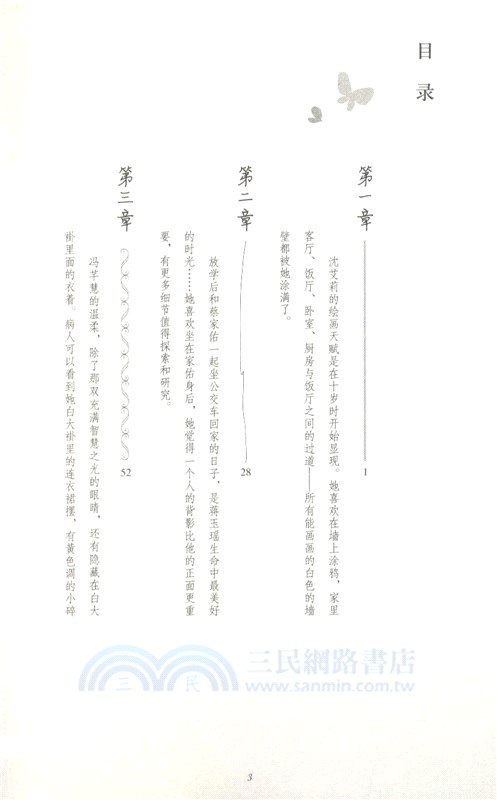 目录
第一章
1
沈艾莉的绘画天赋是在十岁时开始显现。她喜欢在墙上涂鸦，家里
客厅、饭厅、卧室、厨房与饭厅之间的过道——所有能画画的白色的墙
壁都被她涂满了。
第二章
28
放学后和蔡家佑一起坐公交车回家的日子，是蒋玉瑶生命中最美好
的时光……她喜欢坐在家佑身后，她觉得一个人的背影比他的正面更重
要，有更多细节值得探索和研究。
第三章
52
冯芊慧的温柔，除了那双充满智慧之光的眼睛，还有隐藏在白大
褂里面的衣着。病人可以看到她白大褂里的连衣裙摆，有黄色调的小碎
三民
三民網路書店
www.sanmin.com.tw
3